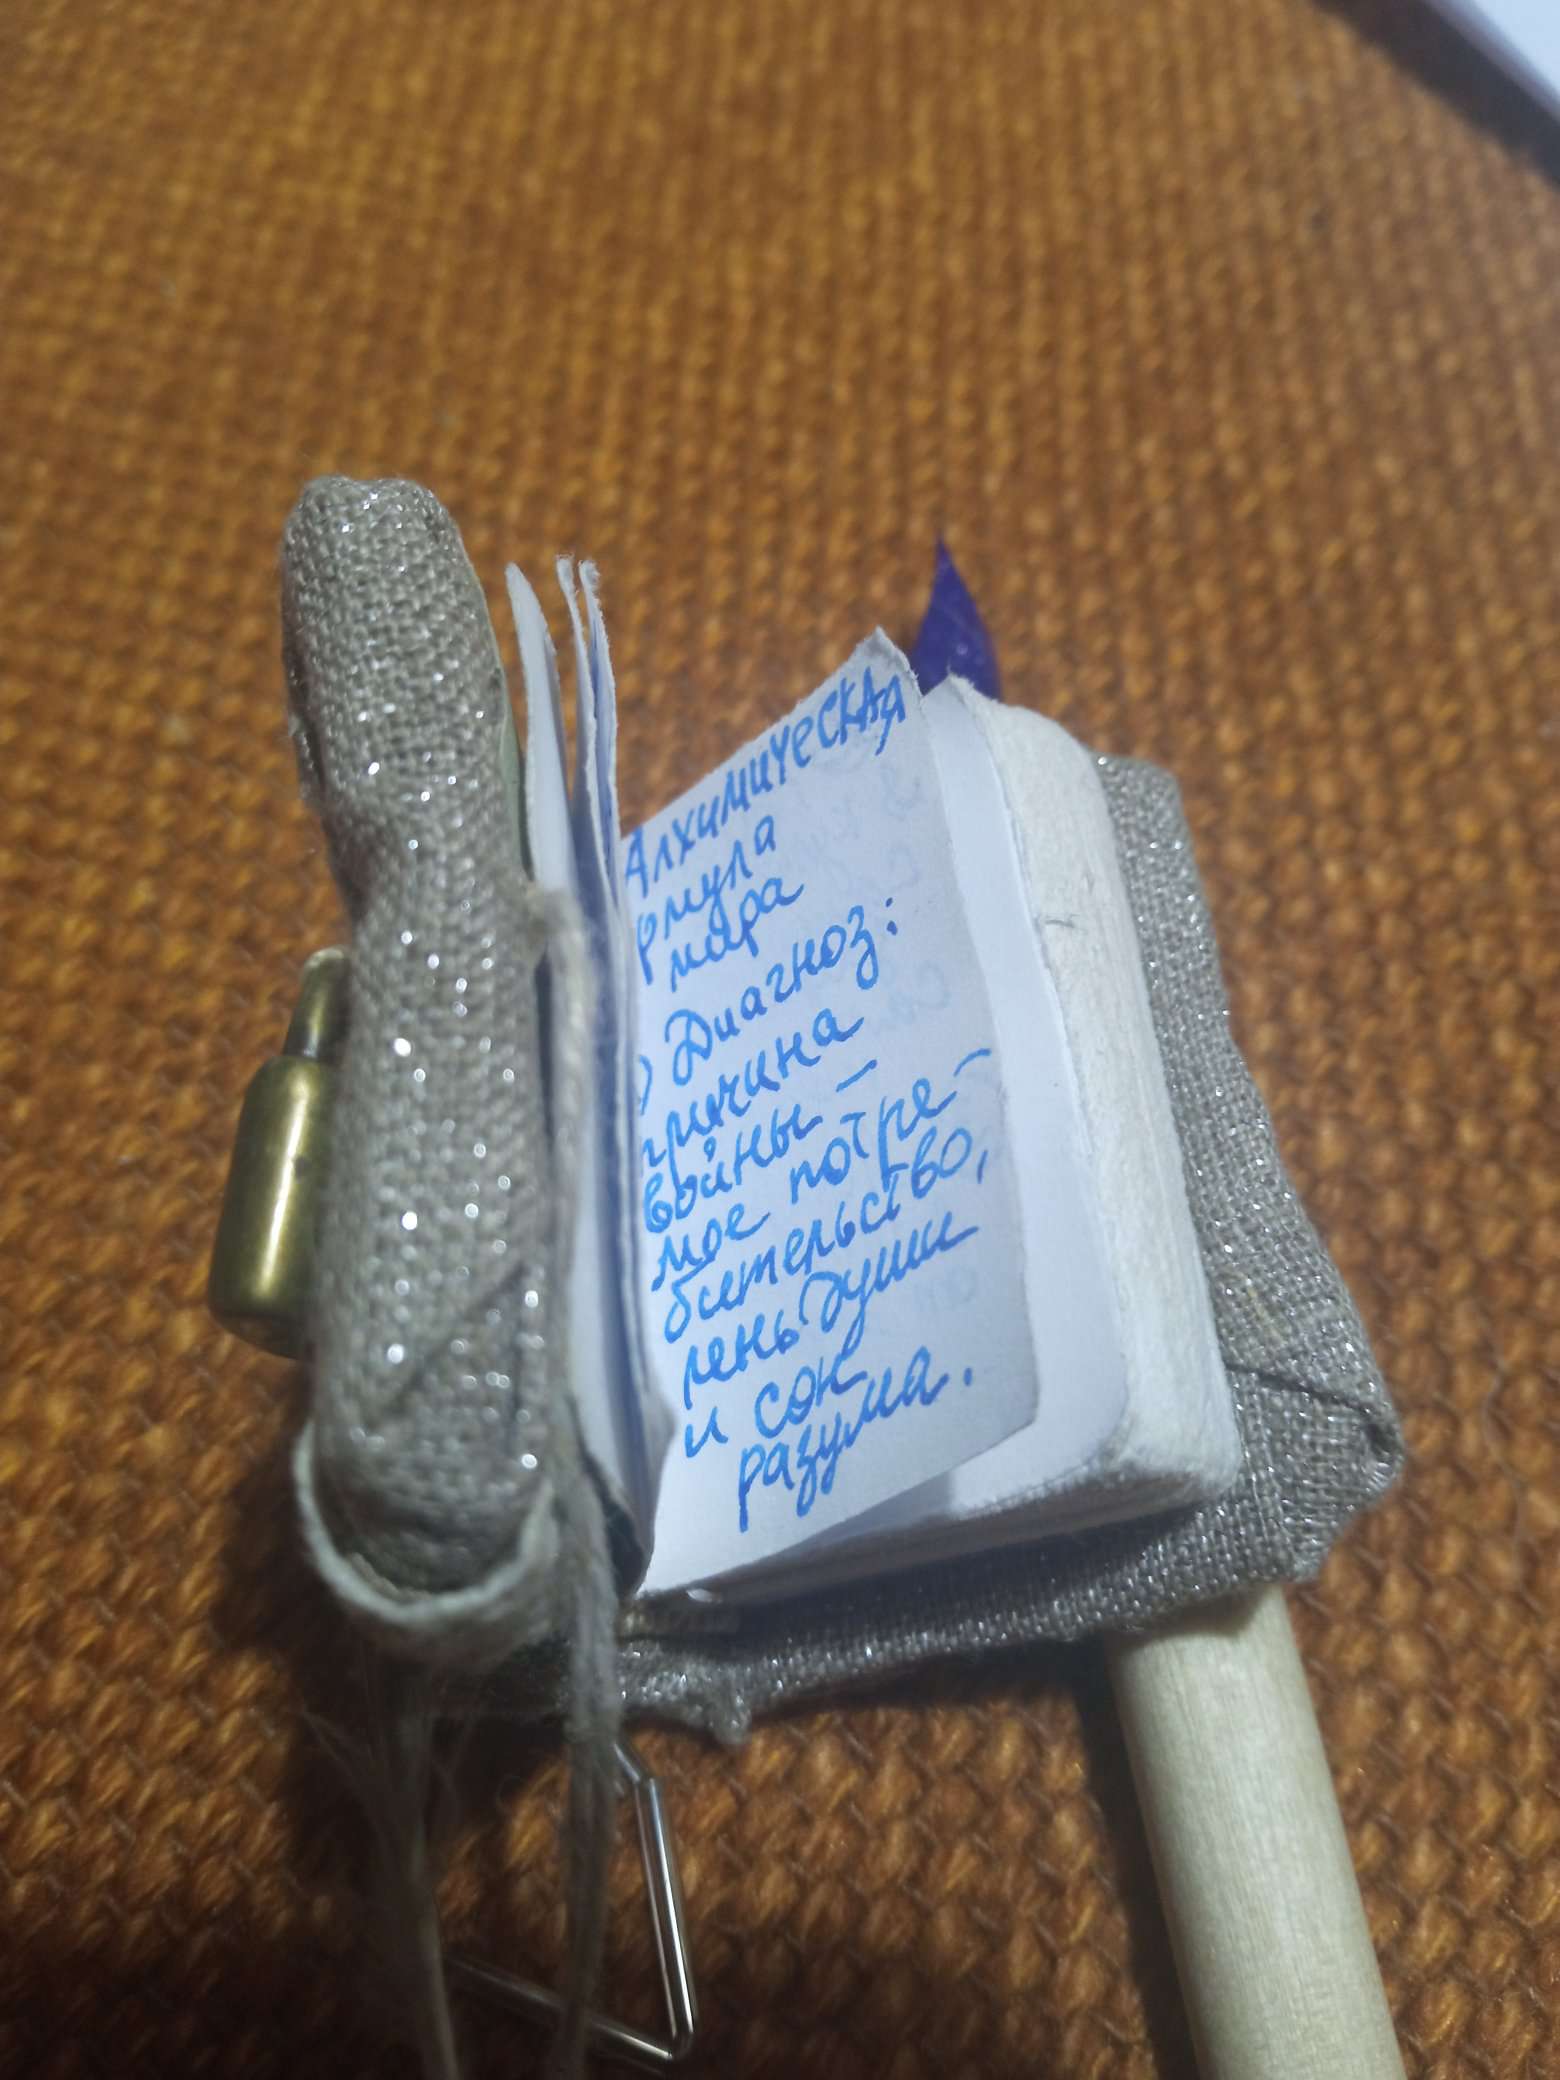 Алхимическая
рмула
мира
) Диагноз:
причина
войны –
мое потре-
бительство,
лень души
и сон
разума.